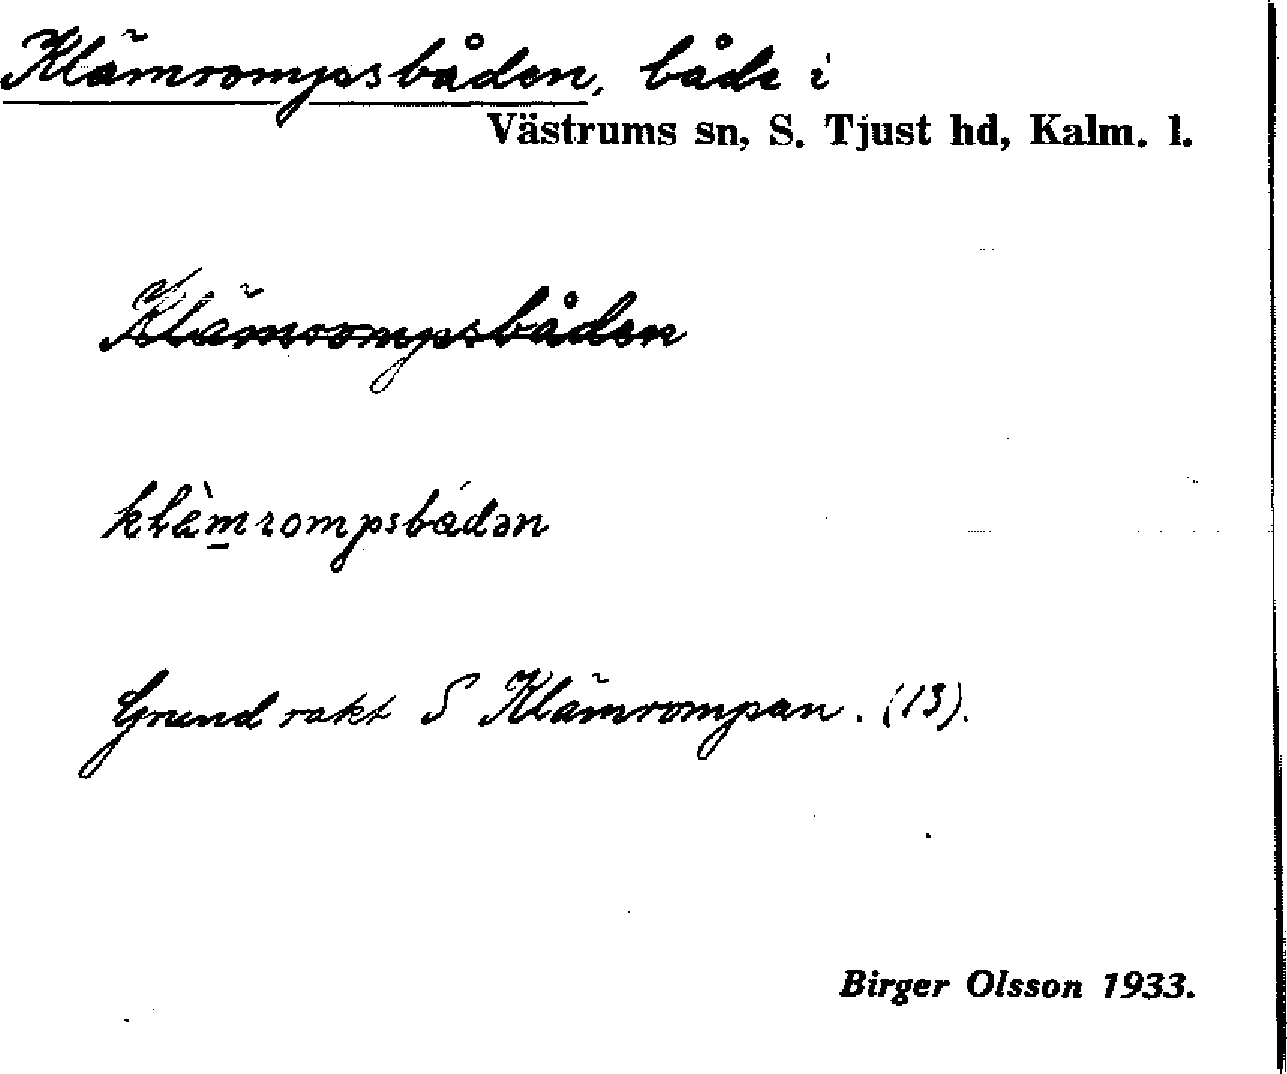 Klämrompsbåden, både i
Västrums sn, S. Tjust hd, Kalm. l.
Klämrompsbåden
klæ̀m̲rompsbádən
Grund rakt S Klämrompan. (13).
Birger Olsson 1933.